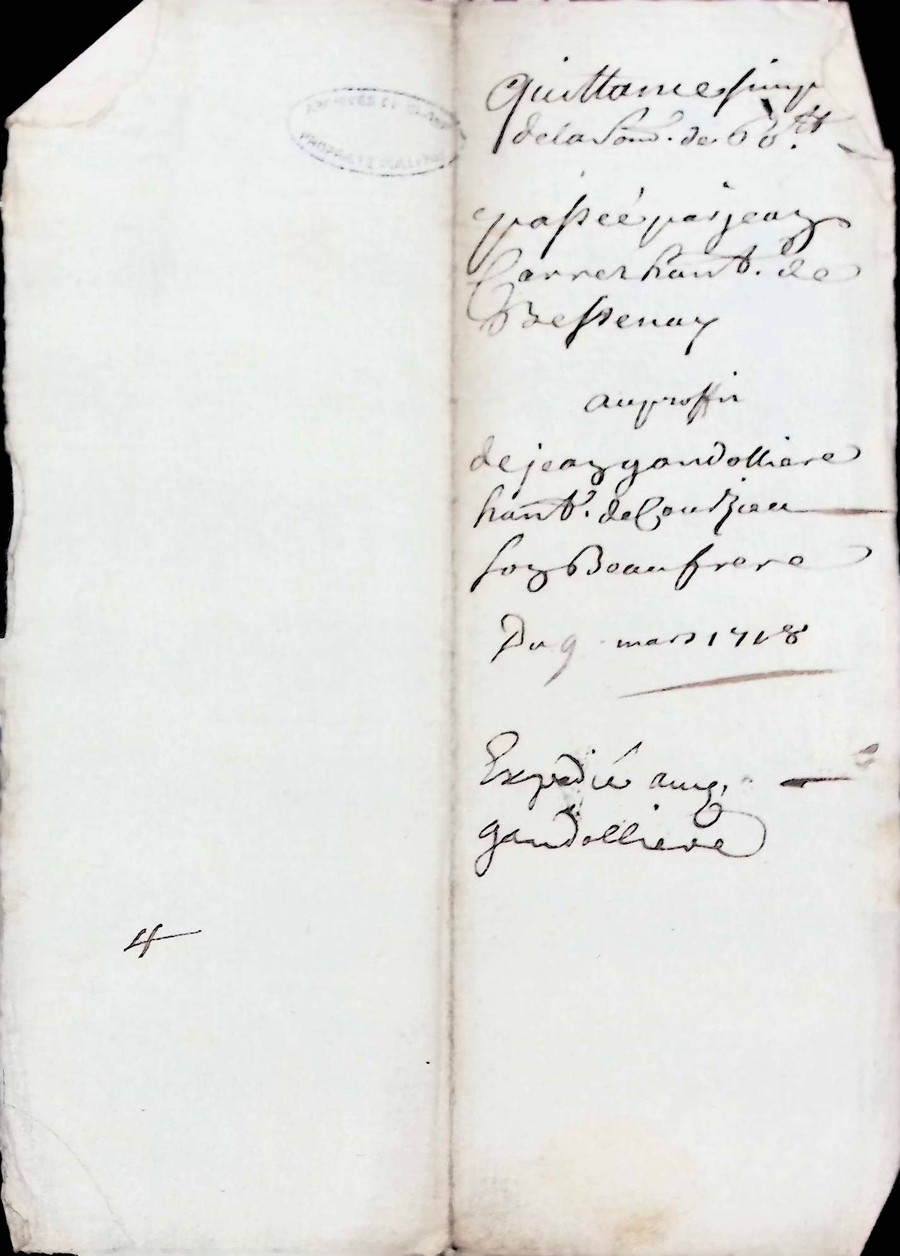 quittance simp
de la som. de 60.tt
passée par jean
Carret hant. de
Bessenay
au proffit
de jean gandolliere
hant. de Courzieu
son Beaufrere
Du 9 mars 1718
Expedié aud.
gandolliere